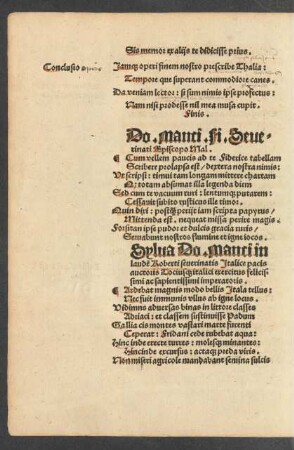 Sis memor ex alijs te didicisse prius.
Conclusio operis
Iamq; operi finem nostro prescribe Thalia:
Tempore que superant commodiore canes.
Da veniam lector: si sum nimis ipse profectus:
Nam nisi prodesse nil mea musa cupit.
Finis.
Do. Manci. Fi. Seue-
rinati Episcopo Mal.
¶ Cum vellem paucis ad te Fiderice tabellam
Scribere prolapsa est / dextera nostra nimis:
Ut scripsi: timui tam longam mittere chartam
Q; totam absumat illa legenda diem
Sed cum te vacuum ruri : lentumq; putarem:
Cessauit subito rusticus ille timor.
Quin dixi : postq̃ perijt iam scripta papyrus /
Mittenda est. nequeat missa perire magis.
Forsitan ipse pudor et dulcis gracia ruris /
Seruabunt nostros flumine et igne iocos.
Sylua Do. Manci in
laudẽ Roberti seuerinatis Italice pacis
auctoris Tociusq; italici exercitus felicis-
simi ac sapientissimi imperatoris.
¶ Ardebat magnis modo bellis Itala tellus:
Nec fuit immunis vllus ab igne locus.
Vidimus aduersas binas in littore classes
Adriaci : et classem sustinuisse Padum
Gallia cis montes vastari marte furenti
Ceperat : Fridani cede rubebat aqua:
Hinc inde erecte turres : molesq; minantes:
Hincinde excursus : actaq; preda viris.
Non misêri agricole mandabant semina sulcis